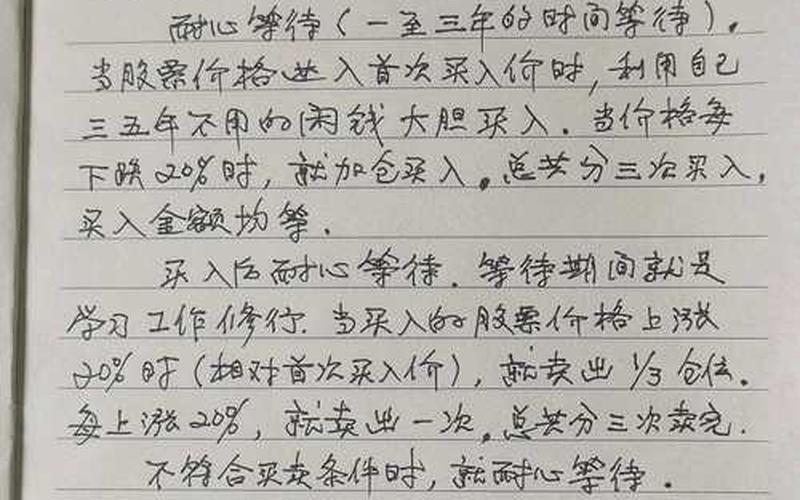 耐心等待(一至三年的时间等待)。
当股票价格达入首次买入价时,利用自己
三五年不用的闲钱大胆买入.当价格每
下跌20%时,就加仓买入。总共分三次买入,
买入金额均等.
买入后耐心等待.等待期间就是
学习工作修行.当买入的股票价格上涨
20%时(相对首次买入价),就卖出1/3仓位.
每上涨20%,就卖出一次。总共分三次卖完.
不符合买卖条件时,就耐心等待.